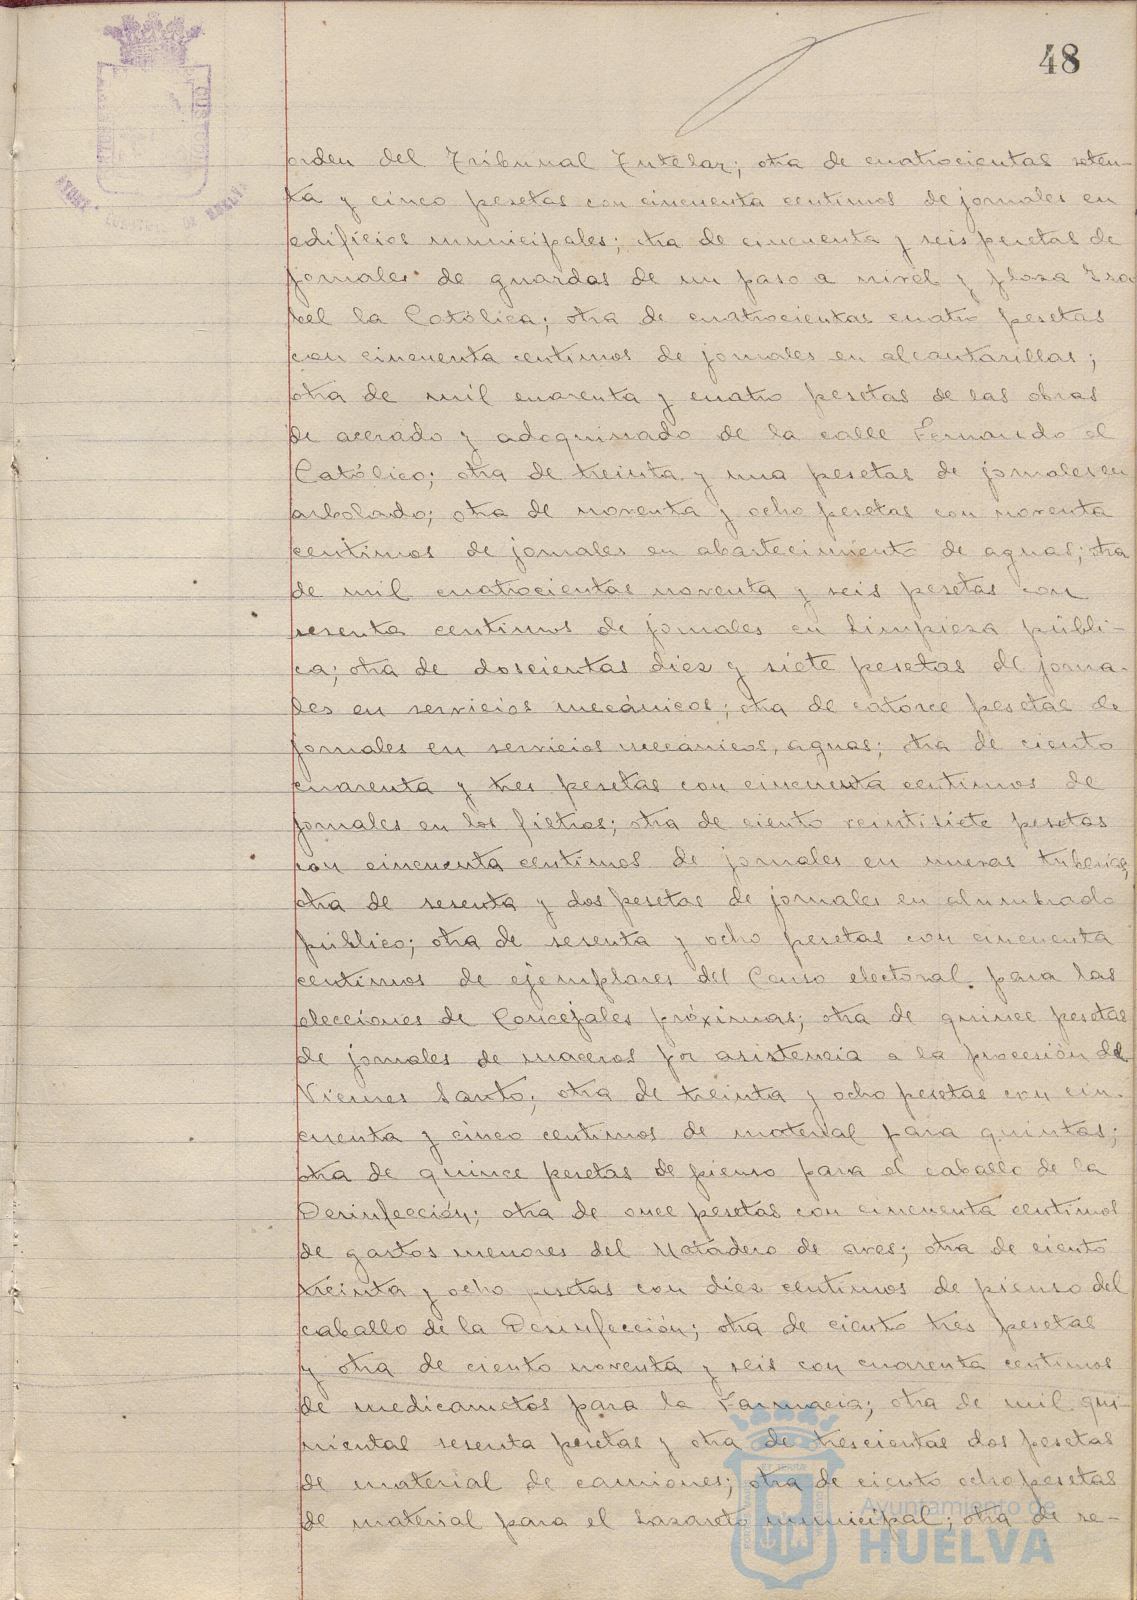 48
orden del Tribunal Tutelar; otra de cuatrocientas seten-
ta y cinco pesetas con cincuenta centimos de jornales en
edificios municipales; otra de cincuenta y seis pesetas de
jornales de guardas de un paso a nivel y plaza Isa
bel la Católica; otra de cuatrocientas cuatro pesetas
con cincuenta centimos de jornales en alcantarillas;
otra de mil cuarenta y cuatro pesetas de las obras
de acerado y adoquinado de la calle Fernando el
Católico; otra de treinta y una pesetas de jornales en
arbolado; otra de noventa y ocho pesetas con noventa
centimos de jornales en abastecimiento de aguas; otra
de mil cuatrocientas noventa y seis pesetas con
sesenta centimos de jornales en Limpieza públi-
ca; otra de doscientas diez y siete pesetas de jorna-
les en servicios mecánicos; otra de catorce pesetas de
jornales en servicios mecánicos, aguas; otra de ciento
cuarenta y tres pesetas con cincuenta centimos de
jornales en los filtros; otra de ciento veintisiete pesetas
con cincuenta centimos de jornales en nuevas tuberias;
otra de sesenta y dos pesetas de jornales en alumbrado
público; otra de sesenta y ocho pesetas con cincuenta
centimos de ejemplares del Censo electoral para las
elecciones de Concejales próximas; otra de quince pesetas
de jornales de maceros por asistencia a la procesión del
Viernes Santo; otra de treinta y ocho pesetas con cin-
cuenta y cinco centimos de material para quintas;
otra de quince pesetas de pienso para el caballo de la
Desinfección; otra de once pesetas con cincuenta centimos
de gastos menores del Matadero de aves; otra de ciento
treinta y ocho pesetas con diez centimos de pienso del
caballo de la Desinfección; otra de ciento tres pesetas
y otra de ciento noventa y seis con cuarenta centimos
de medicametos para la Farmacia; otra de mil qui-
nientas sesenta pesetas y otra de trescientas dos pesetas
de material de camiones; otra de ciento ocho pesetas
de material para el Lazareto municipal; otra de se-
Ayuntamiento de
HUELVA